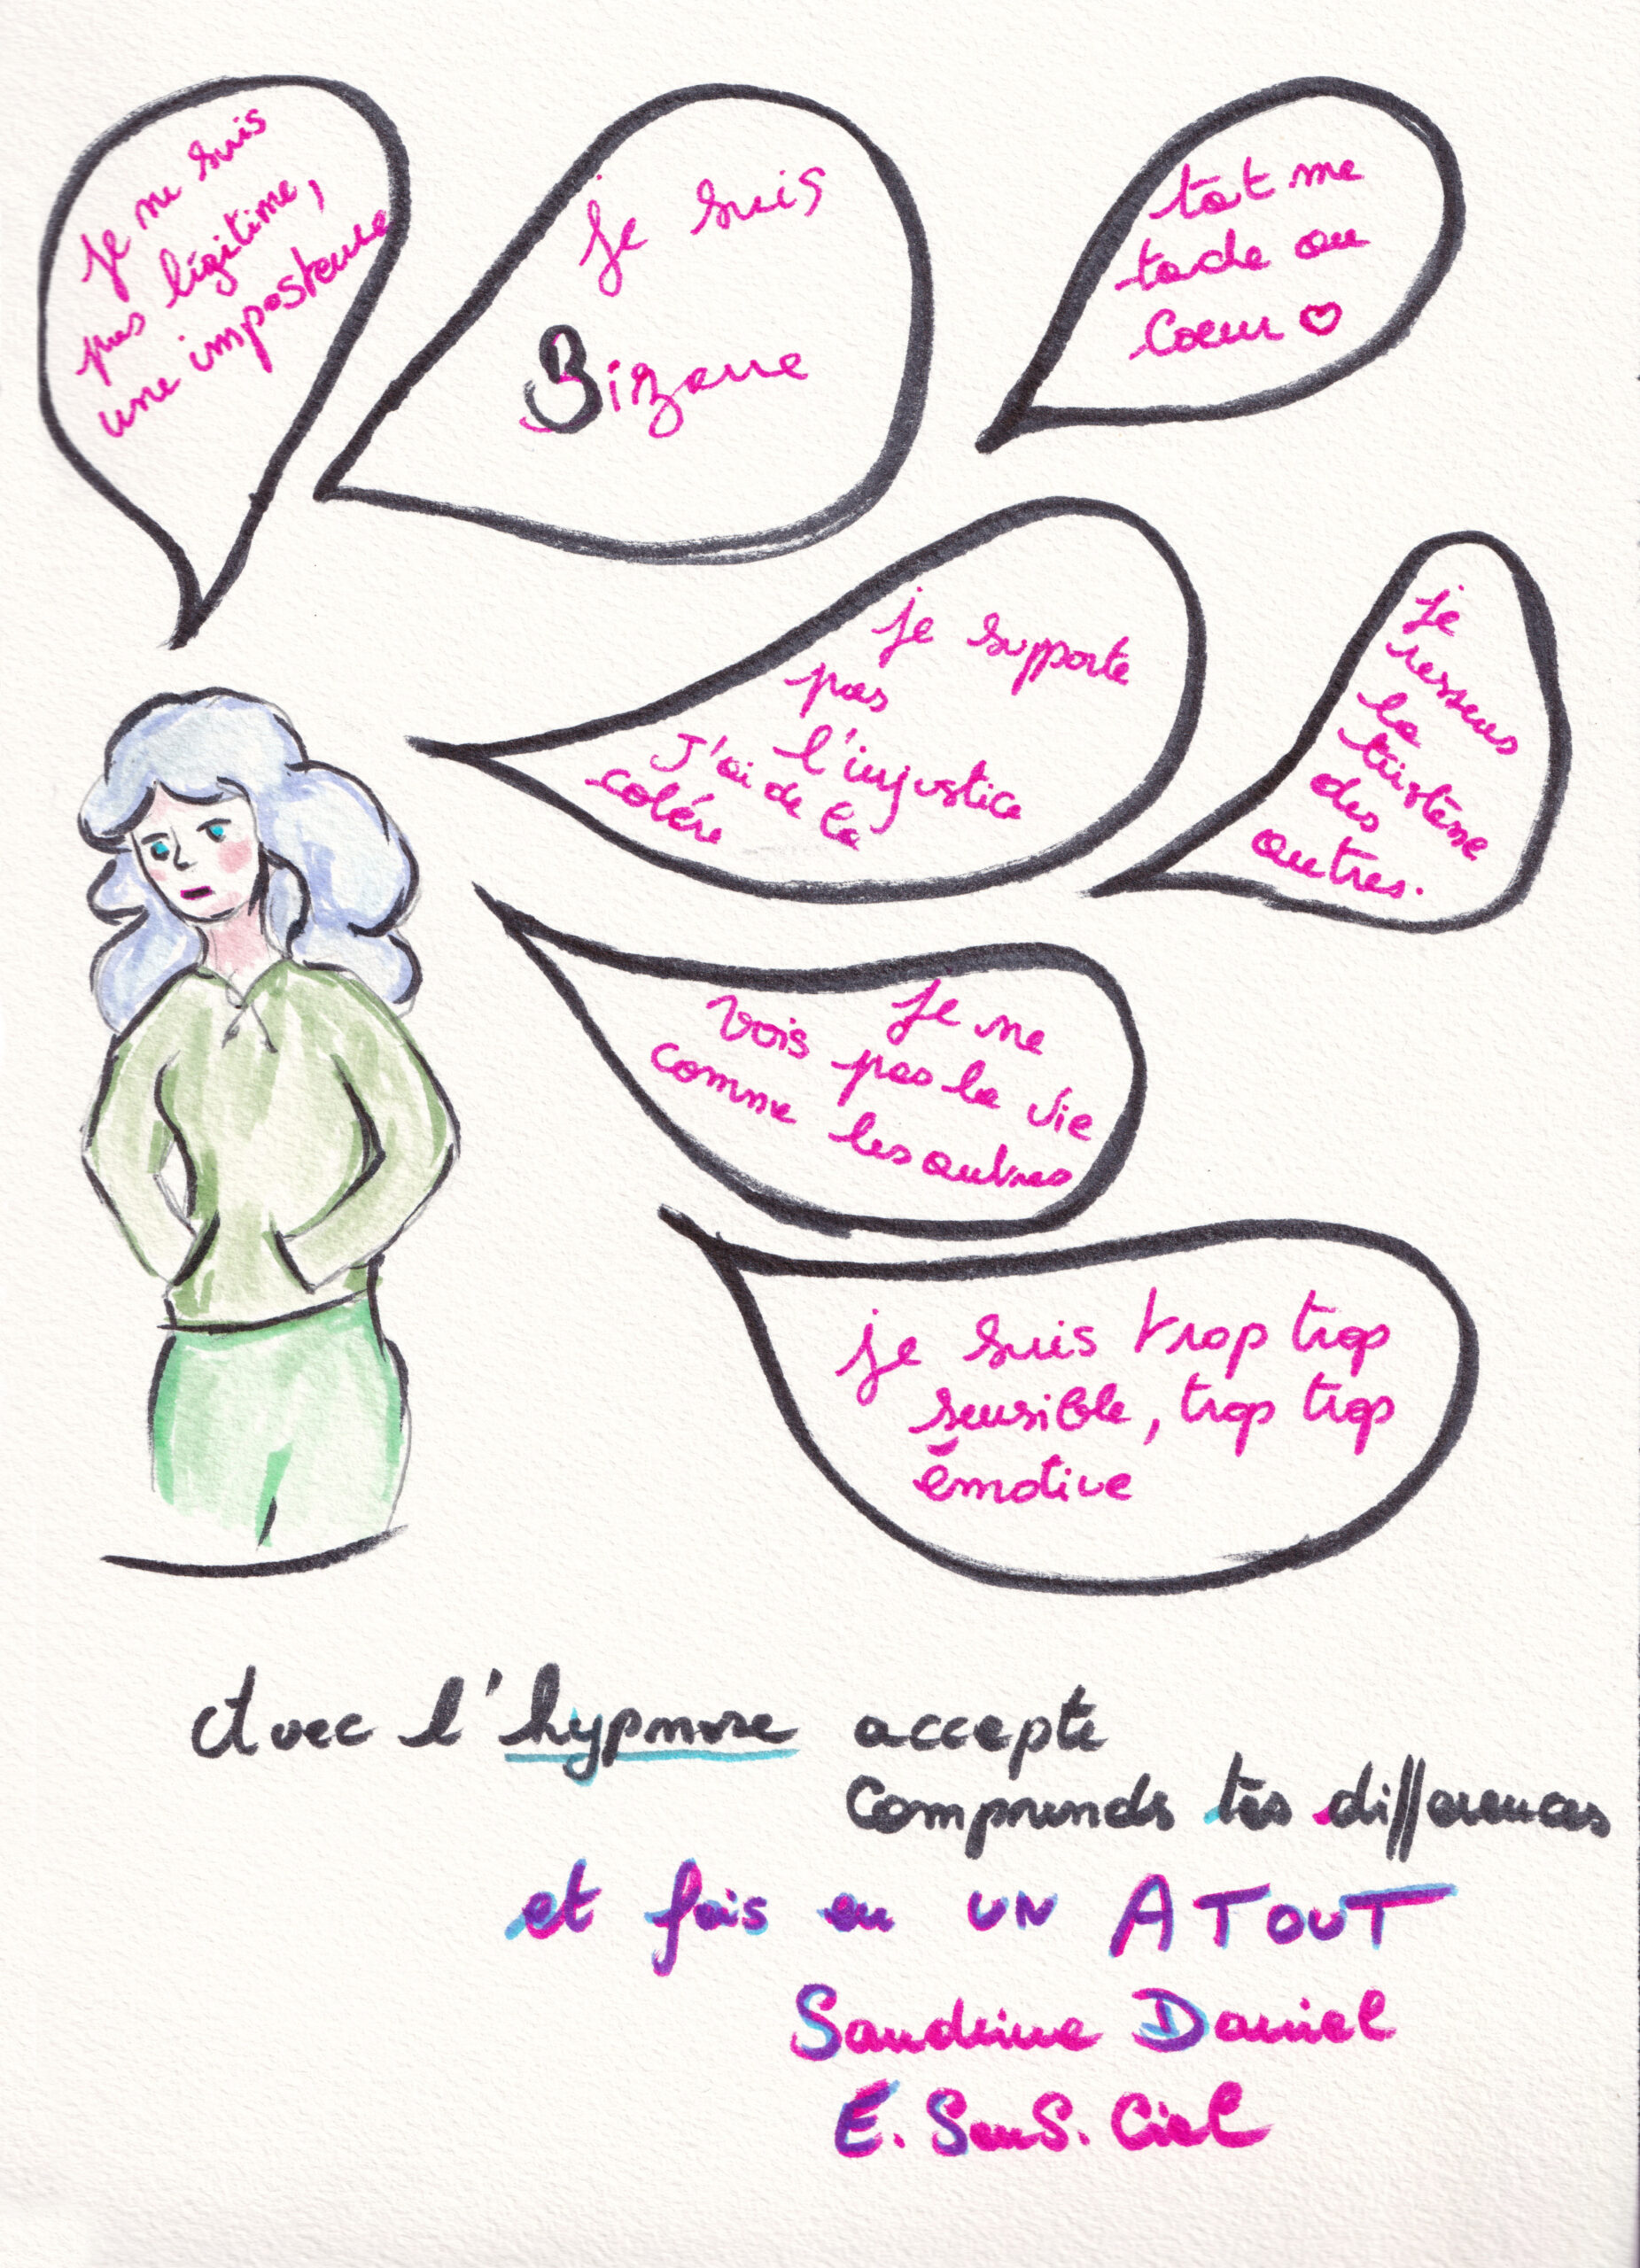 je ne suis
pas légitime,
une imposteure
je suis
Bizarre
tot me
toche au
Coeur
je supporte
pas
l'injustice
J'ai de la
colére
je
ressens
la
tristesse
des
autres.
je ne
vois pas la vie
comme les autres
je suis trop trop
sensible, trop trop
émotive
Avec l'hypnose accepte
Comprends tes differences
et fais en UN ATOUT
Sandrine Daniel
E. SenS. Ciel